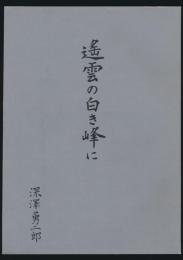 遙雲の白き峰に
深澤勇二郎